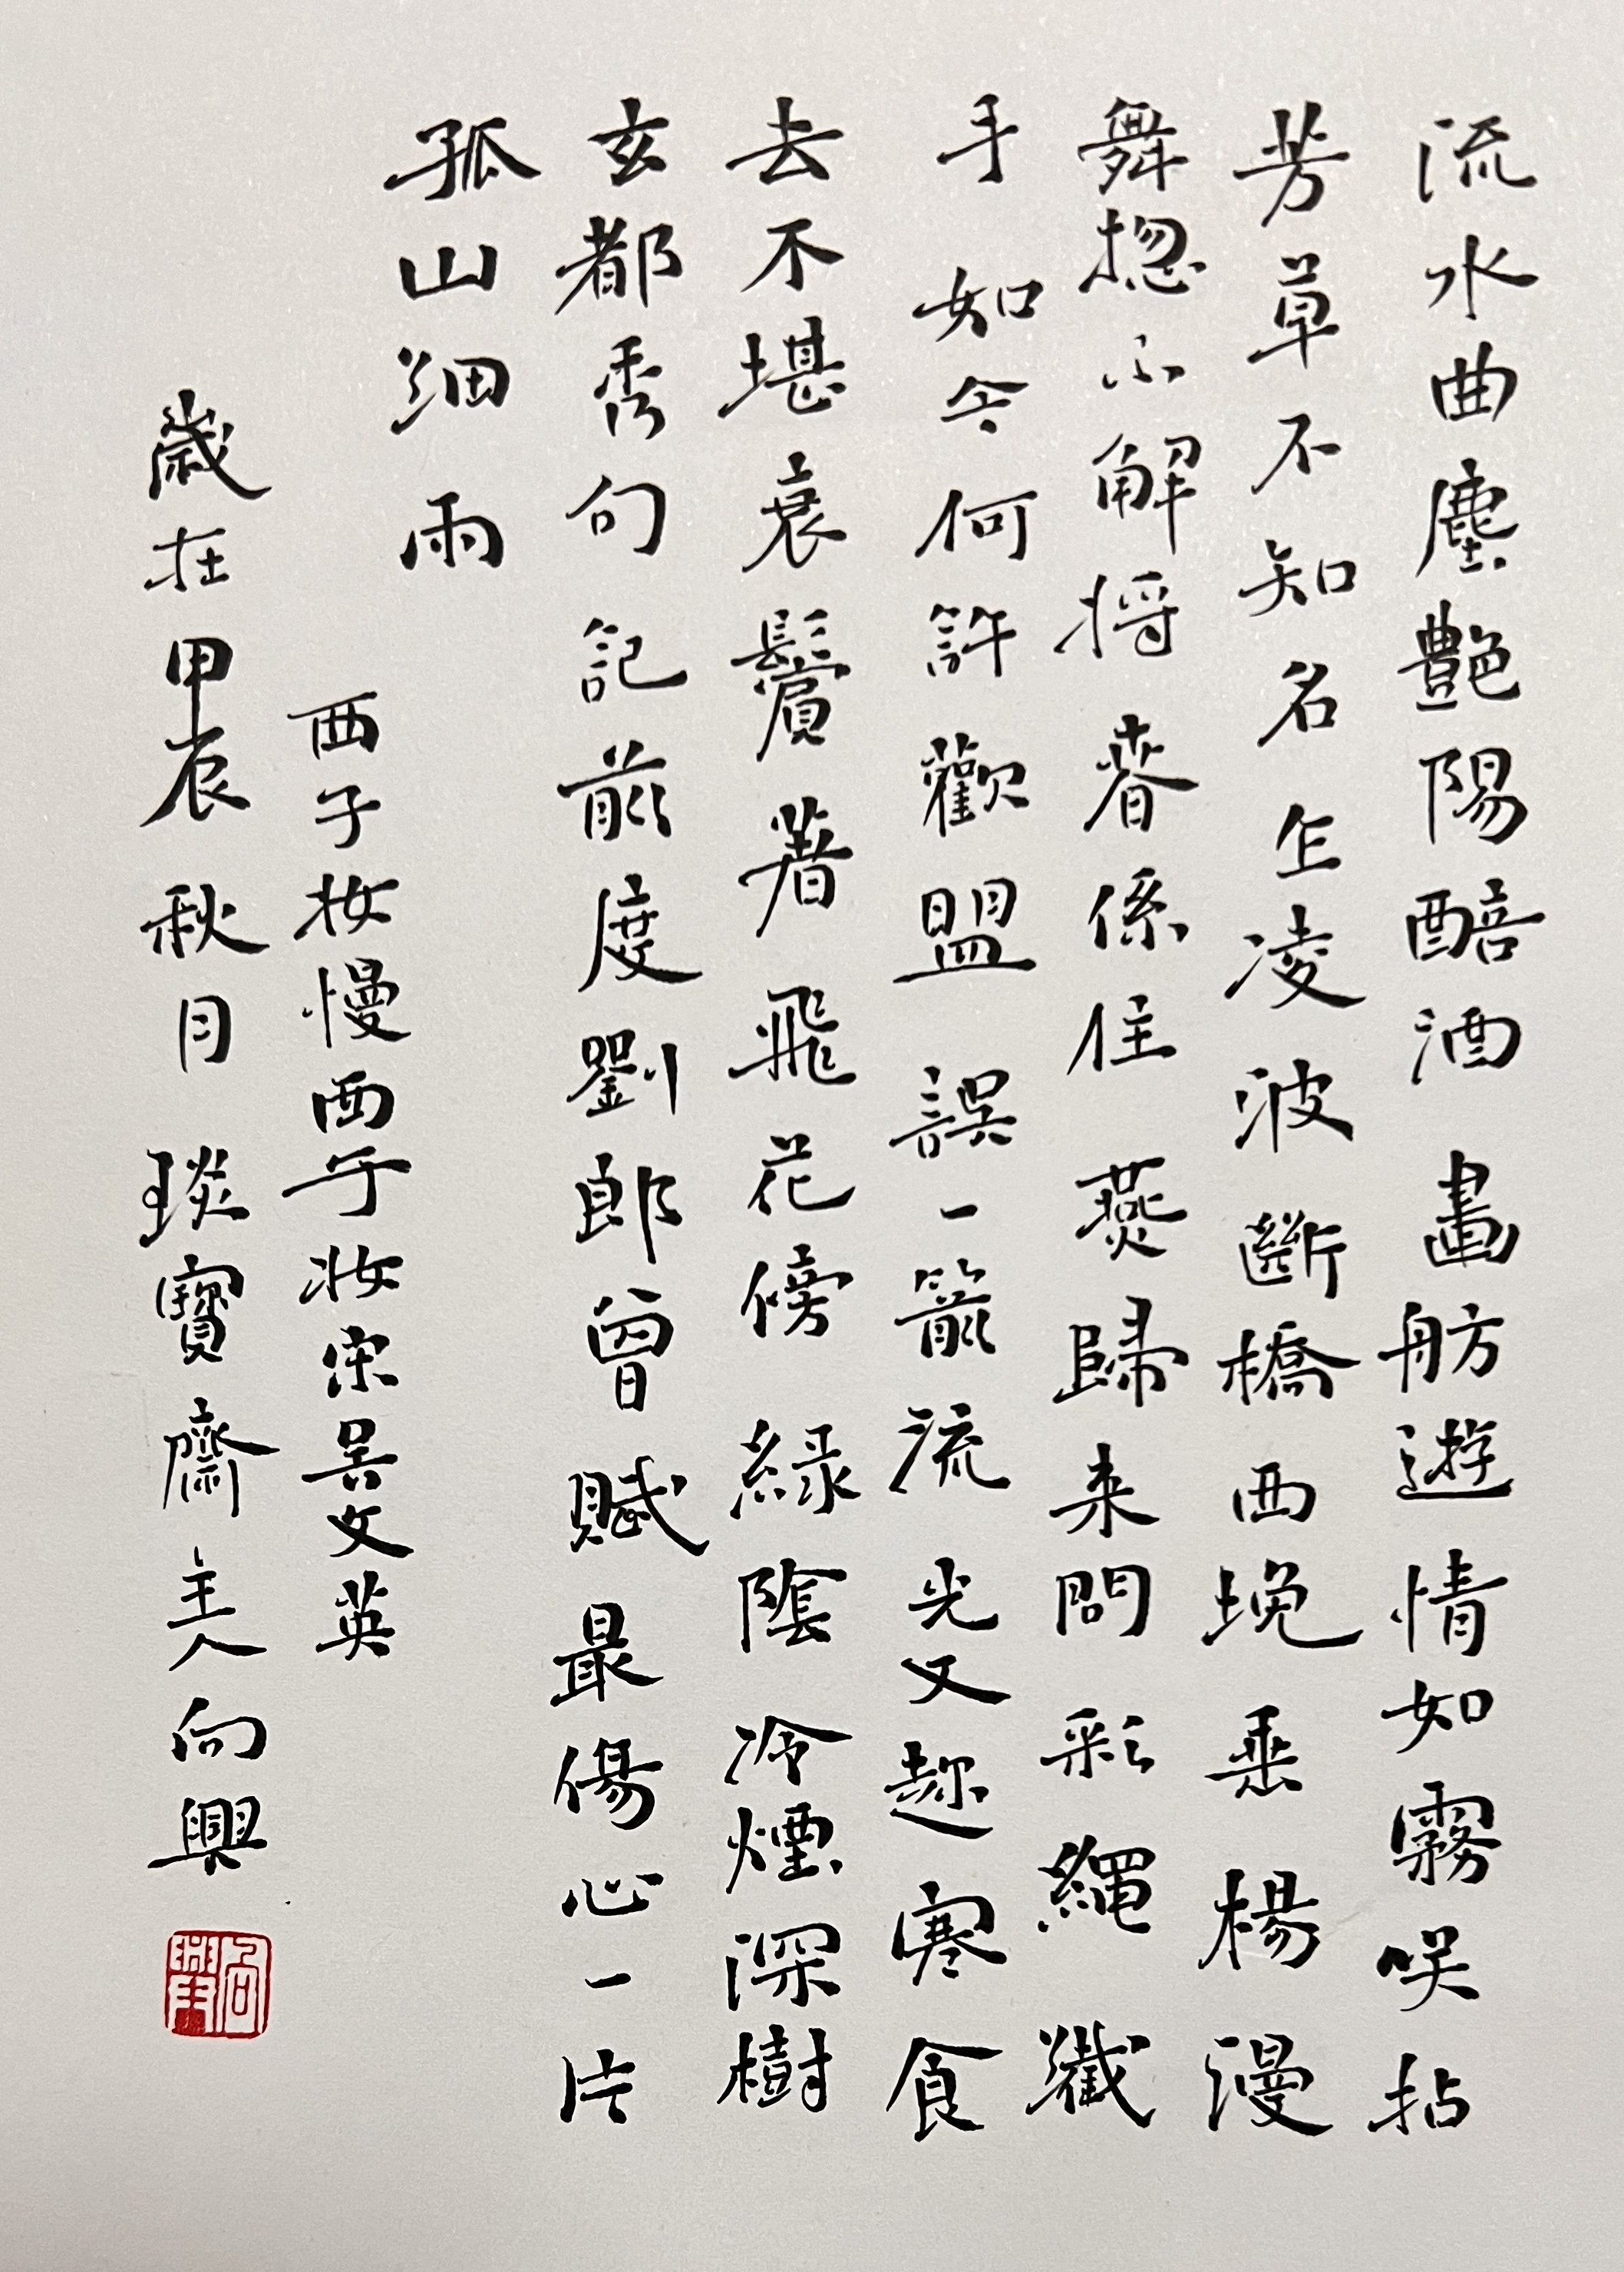 流水曲塵豔陽醅酒畫舫遊情如霧咲拈
芳草不知名乍凌波斷橋西堍垂楊漫
舞揔不解將春係住燕歸來問彩繩纖
手如今何許歡盟誤一箭流光又趂寒食
去不堪衰鬢著飛花傍綠陰冷煙深樹
玄都秀句記前度劉郎曾賦最傷心一片
孤山細雨
西子妝慢西子妝宋吳文英
歲在甲辰秋月琰寶齋主人向興
向興